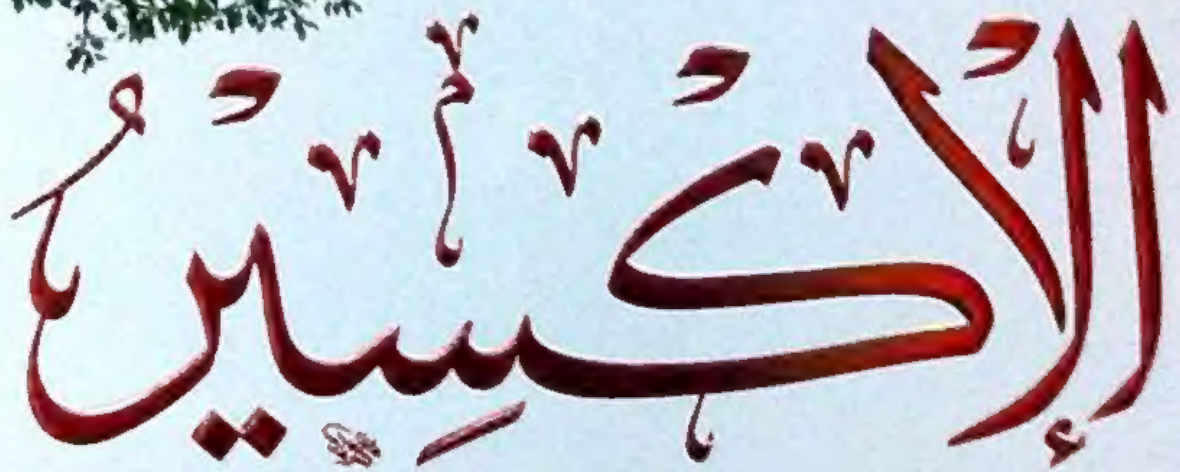 الْإِكْسِيْرُ